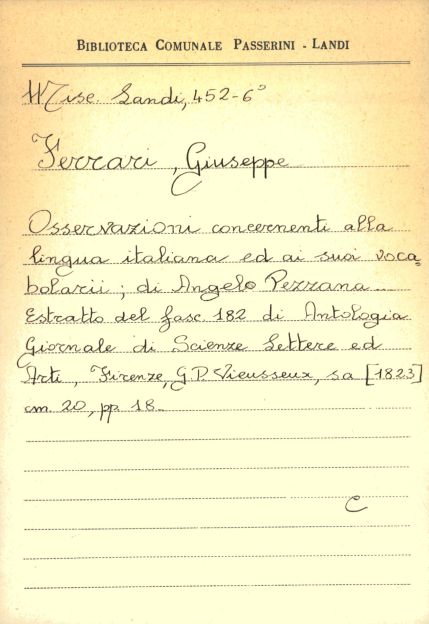 BIBLIOTECA COMUNALE PASSERINI - LANDI
Misc. Landi, 452-6°
Ferrari, Giuseppe
Osservazioni concernenti alla
lingua italiana ed ai suoi voca=
bolarii; di Angelo Pezzana...
Estratto del fasc 182 di Antologia
Giornale di Scienze Lettere ed
Arti, Firenze, G.P. Vieusseux, sa [1823]
cm. 20, pp 18.
C